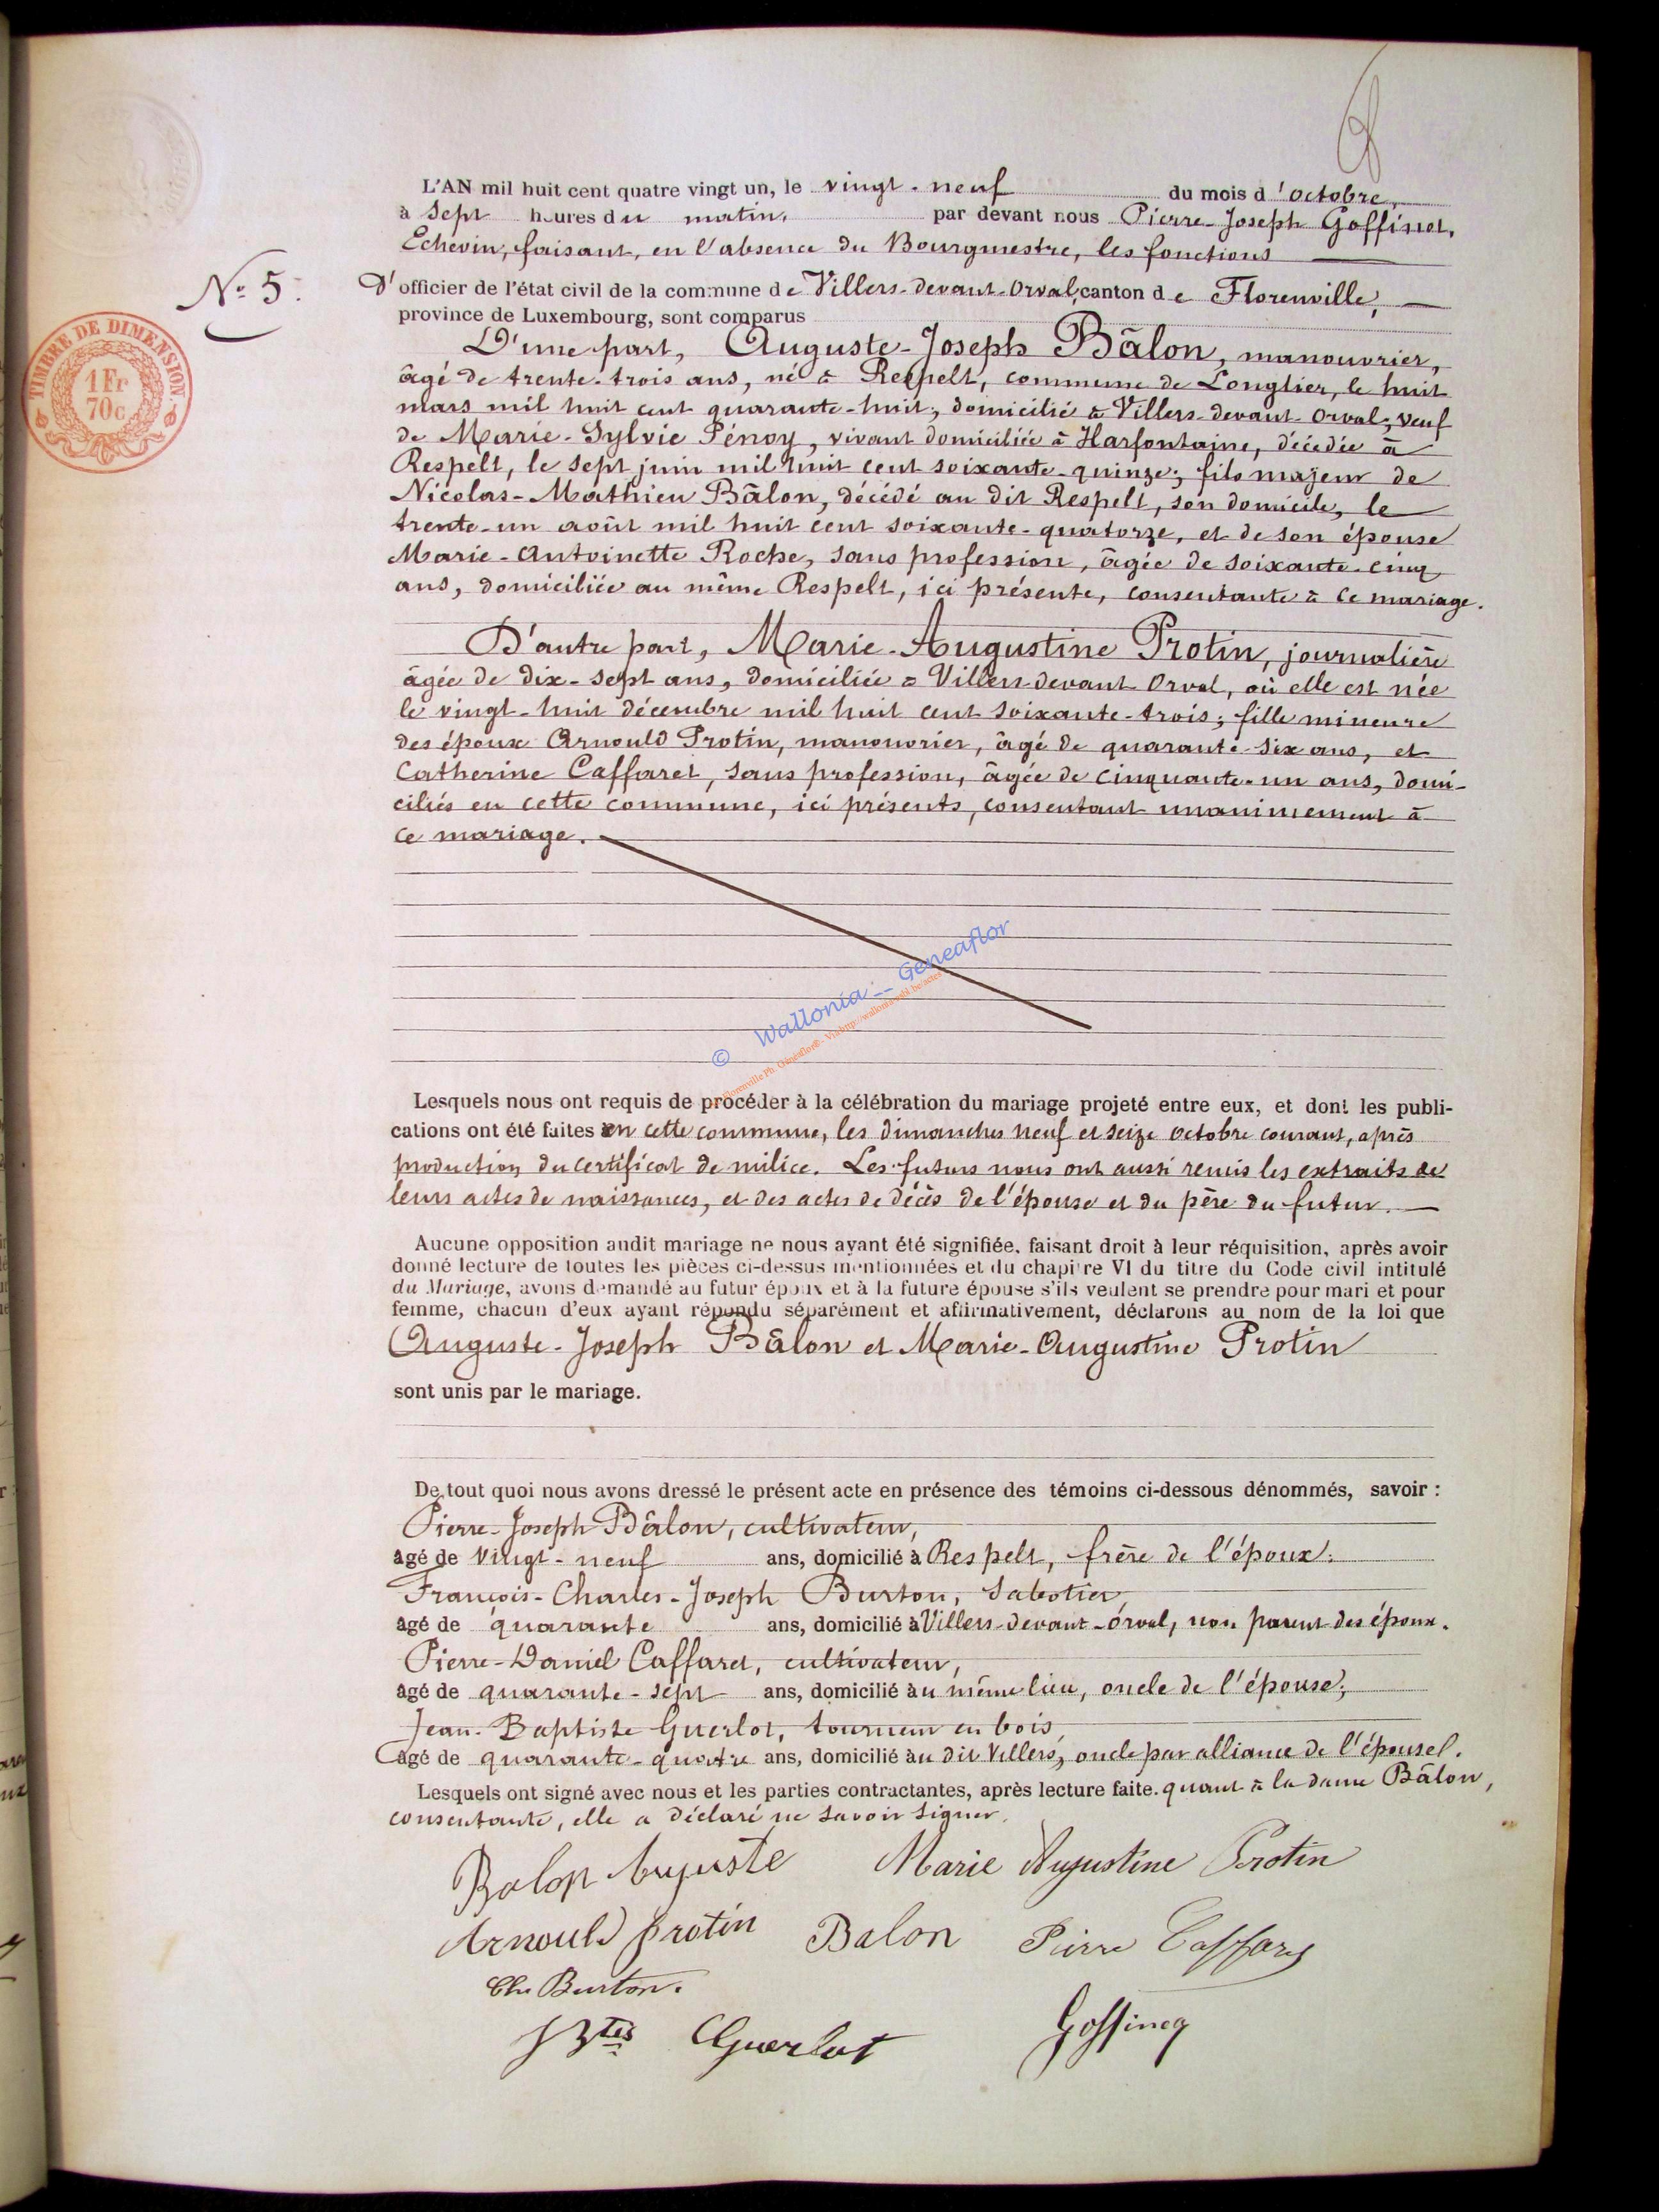 L'AN mil huit cent quatre vingt un, le vingt-neuf du mois d'octobre,
à sept heures du matin, par devant nous Pierre-Joseph Goffinet,
Echevin, faisant, en l'absence du Bourgmestre, les fonctions
N° 5.
D'officier de l'état civil de la commune de Villers-devant-Orval, canton de Florenville,
province de Luxembourg, sont comparus
TIMBRE DE DIMENSION
1 Fr
70c
D'une part, Auguste-Joseph Bâlon, manouvrier,
âgé de trente-trois ans, né à Respelt, commune de Longlier, le huit
mars mil huit cent quarante-huit, domicilié à Villers-devant-Orval; veuf
de Marie-Sylvie Pénoy, vivant domiciliée à Harfontaine, décédée à
Respelt, le sept juin mil huit cent soixante-quinze; fils majeur de
Nicolas-Mathieu Bâlon, décédé au dit Respelt, son domicile, le
trente-un août mil huit cent soixante-quatorze, et de son épouse
Marie-Antoinette Roche, sans profession, âgée de soixante-cinq
ans, domiciliée au même Respelt, ici présente, consentante à ce mariage.
D'autre part, Marie-Augustine Protin, journalière
âgée de dix-sept ans, domiciliée à Villers-devant-Orval, où elle est née
le vingt-huit décembre mil huit cent soixante-trois; fille mineure
des époux Arnould Protin, manouvrier, âgé de quarante-six ans, et
Catherine Caffaret, sans profession, âgée de cinquante-un ans, domi-
ciliés en cette commune, ici présents, consentant unanimement à
ce mariage.
© Wallonia -- Geneaflor
Lesquels nous ont requis de procéder à la célébration du mariage projeté entre eux, et dont les publi-
cations ont été faites en cette commune, les dimanches neuf et seize octobre courant, après
production du certificat de milice. Les futurs nous ont aussi remis les extraits de
leurs actes de naissances, et des actes de décès de l'épouse et du père du futur.
Aucune opposition audit mariage ne nous ayant été signifiée, faisant droit à leur réquisition, après avoir
donné lecture de toutes les pièces ci-dessus mentionnées et du chapitre VI du titre du Code civil intitulé
du Mariage, avons demandé au futur époux et à la future épouse s'ils veulent se prendre pour mari et pour
femme, chacun d'eux ayant répondu séparément et affirmativement, déclarons au nom de la loi que
Auguste-Joseph Bâlon et Marie-Augustine Protin
sont unis par le mariage.
De tout quoi nous avons dressé le présent acte en présence des témoins ci-dessous dénommés, savoir :
Pierre-Joseph Bâlon, cultivateur,
âgé de vingt-neuf ans, domicilié à Respelt, frère de l'époux.
François-Charles-Joseph Burton, sabotier,
âgé de quarante ans, domicilié à Villers-devant-Orval, non parent des époux.
Pierre-Daniel Caffaret, cultivateur,
âgé de quarante-sept ans, domicilié au même lieu, oncle de l'épouse;
Jean-Baptiste Guerlot, tourneur en bois,
âgé de quarante-quatre ans, domicilié au dit Villers, oncle par alliance de l'épouse.
Lesquels ont signé avec nous et les parties contractantes, après lecture faite. quant à la dame Bâlon,
consentante, elle a déclaré ne savoir signer.
Balon Auguste Marie Augustine Protin
Arnould protin Balon Pierre Caffary
Ch. Burton.
J Btes Guerlot Goffineg